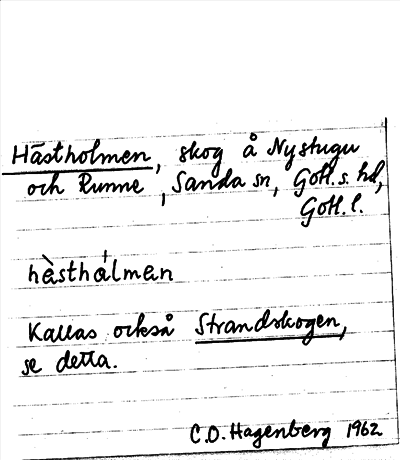 Hästholmen, skog å Nystugu
och Runne, Sanda sn, Gotl. s. hd,
Gotl. l.
hä̀sthålmen
Kallas också Strandskogen,
se detta.
C.O. Hagenberg 1962